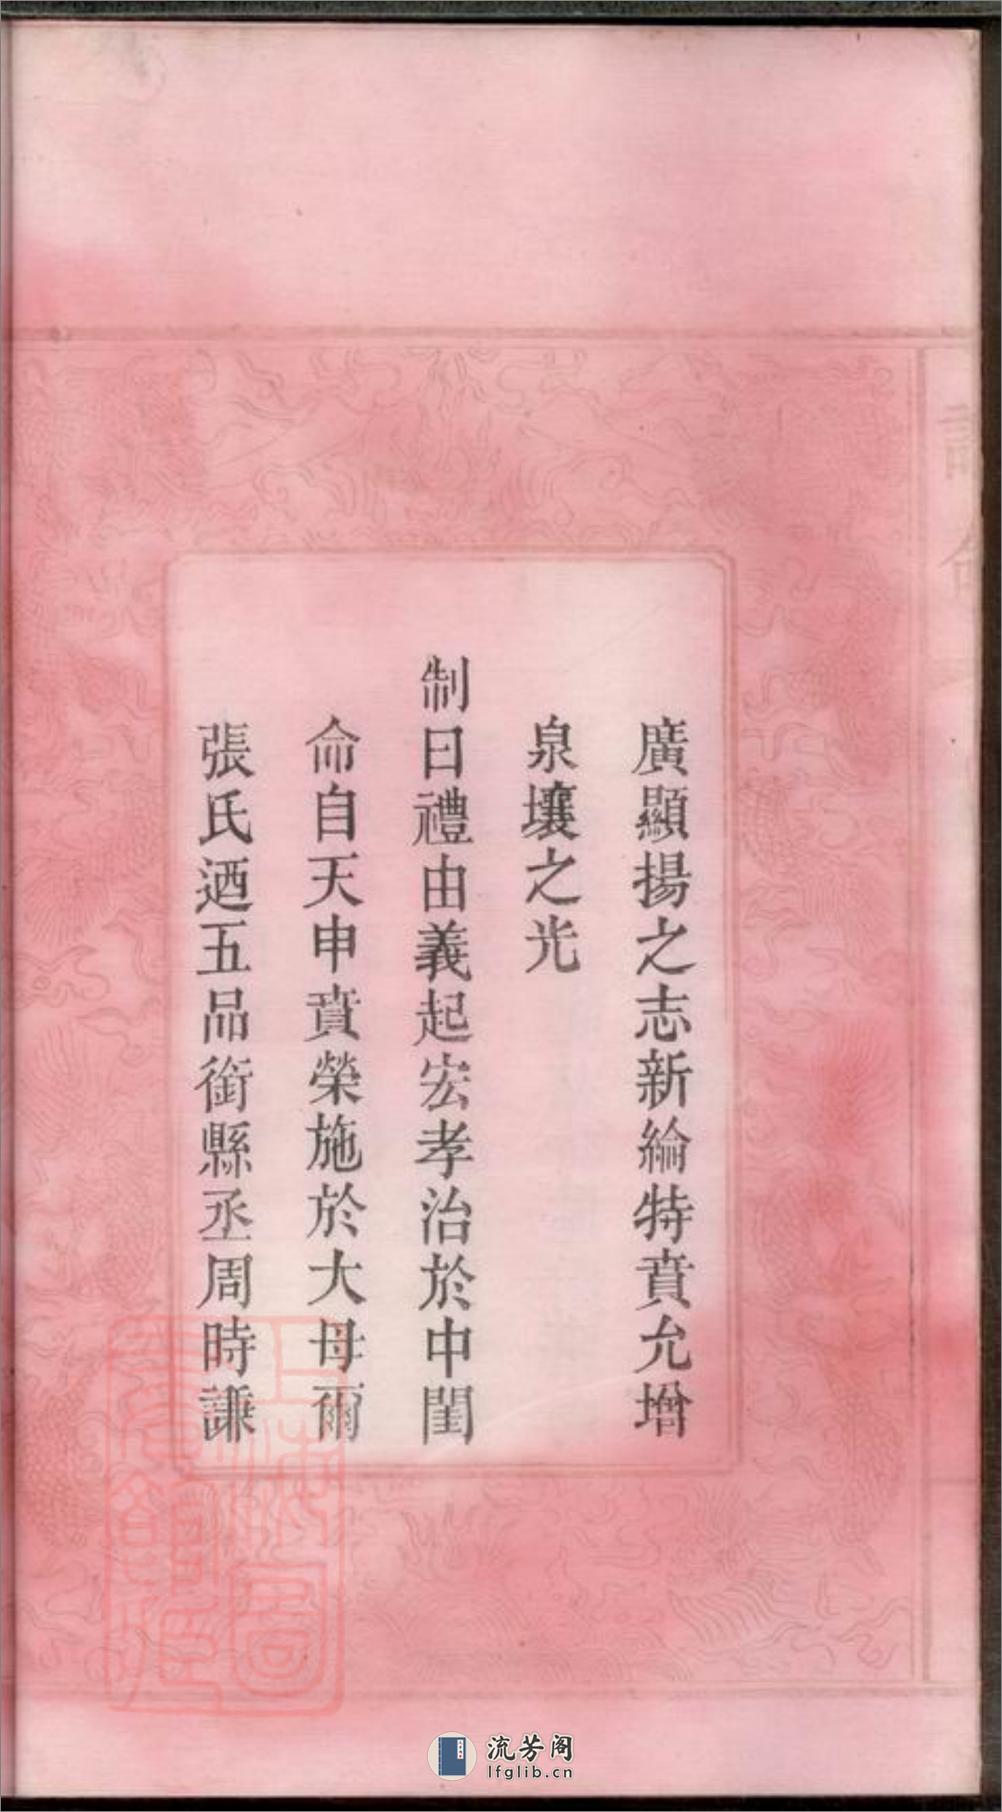 廣顯揚之志新綸特賁允增
泉壤之光
制曰禮由義起宏孝治於中閨
命自天申賁榮施於大母爾
張氏迺五品銜縣丞周時謙
誥命
上海圖書館藏
流芳阁
lfglib.cn